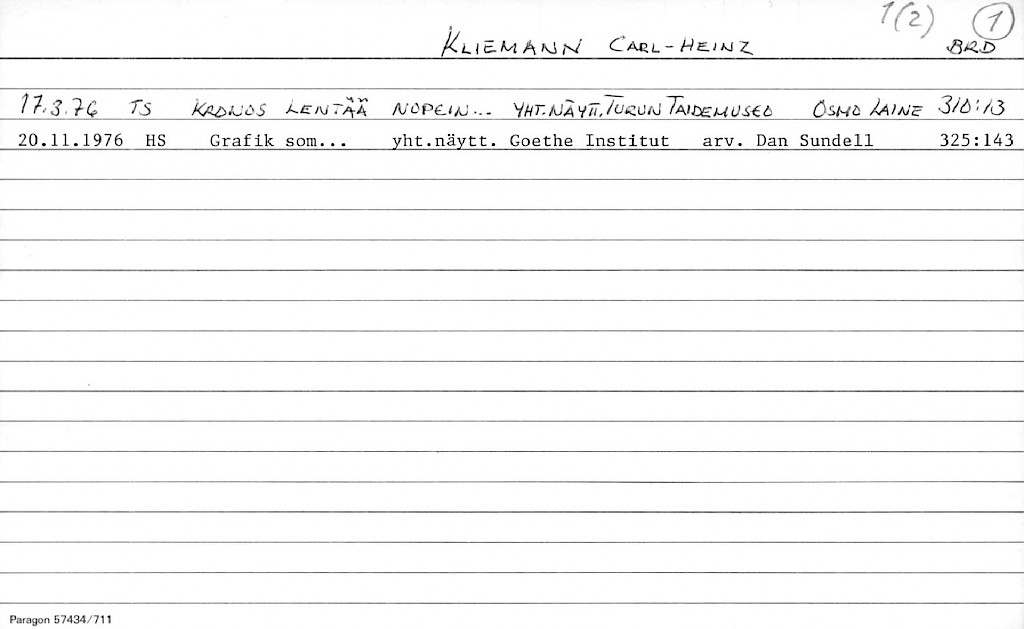 1(2) 1
KLIEMANN CARL-HEINZ BRD
17.3.76 TS KRONOS LENTÄÄ NOPEIN... YHT.NÄYTT. TURUN TAIDEMUSEO OSMO LAINE 310:13
20.11.1976 HS Grafik som... yht.näytt. Goethe Institut arv. Dan Sundell 325:143
Paragon 57434/711